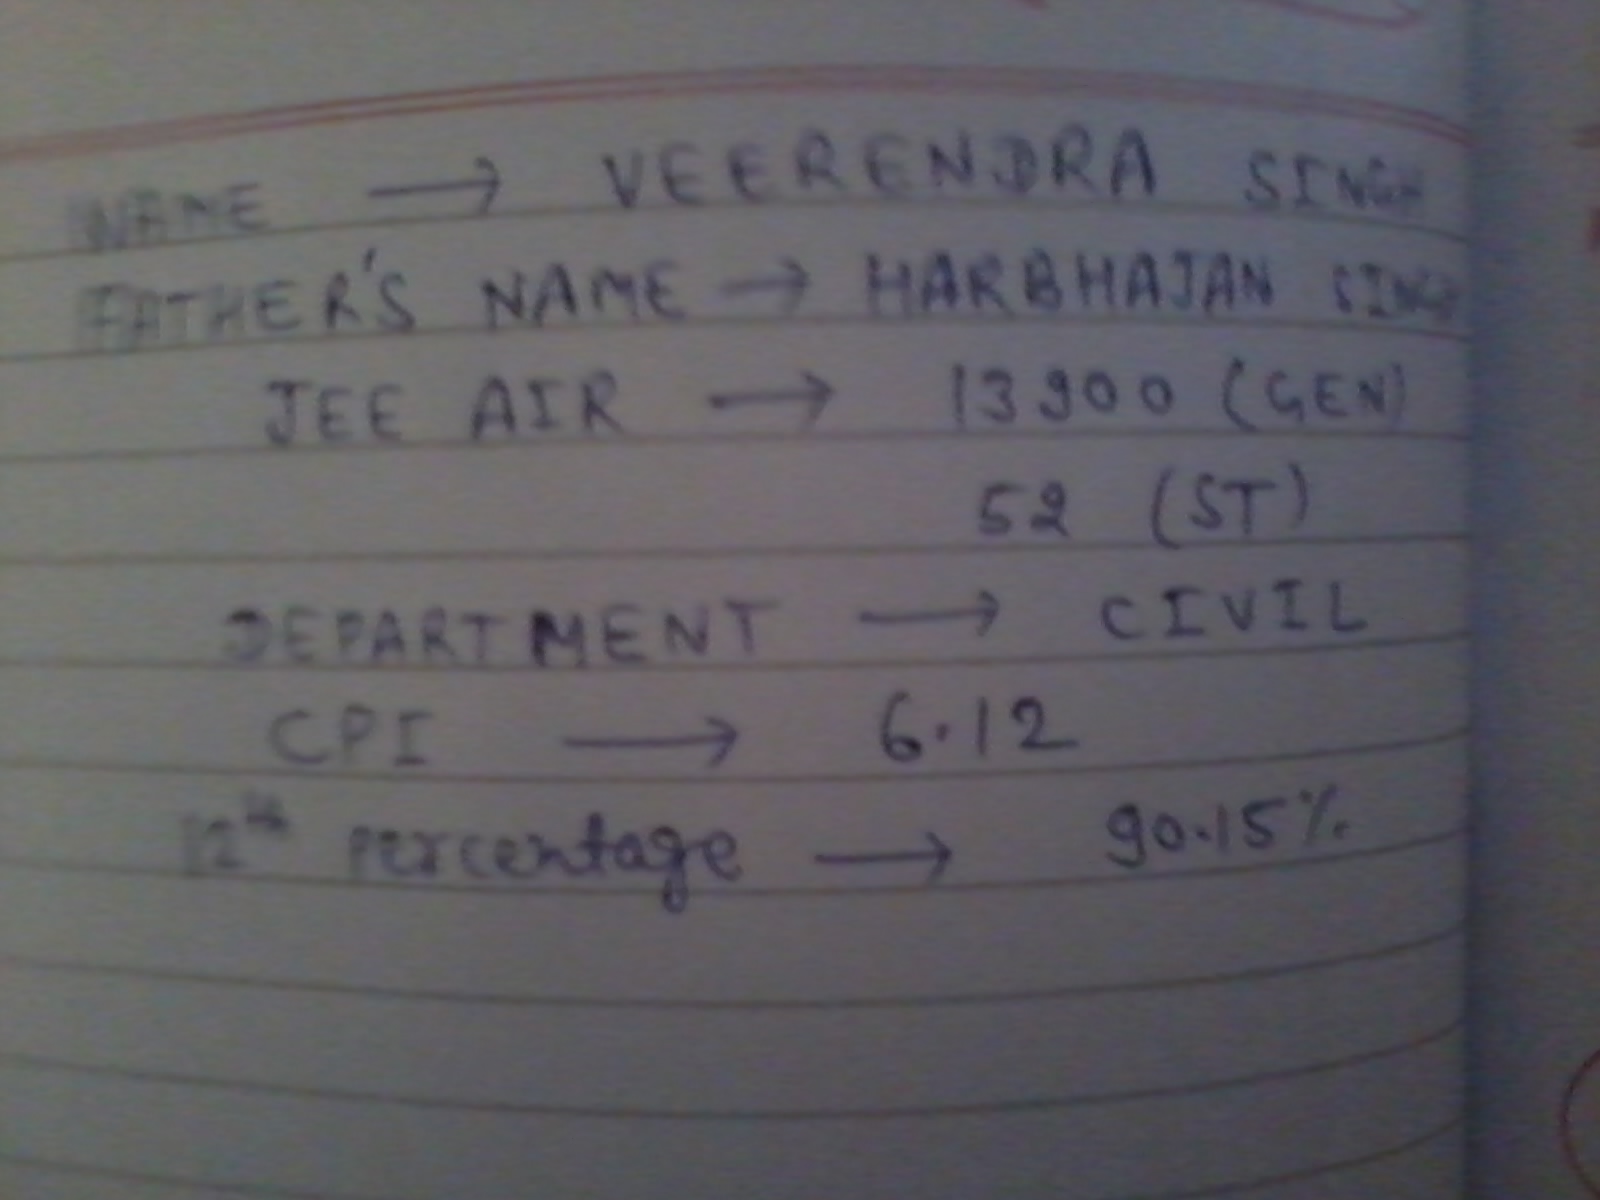 NAME → VEERENDRA SINGH
FATHER'S NAME → HARBHAJAN SINGH
JEE AIR → 13900 (GEN)
52 (ST)
DEPARTMENT → CIVIL
CPI → 6.12
12th percentage → 90.15%